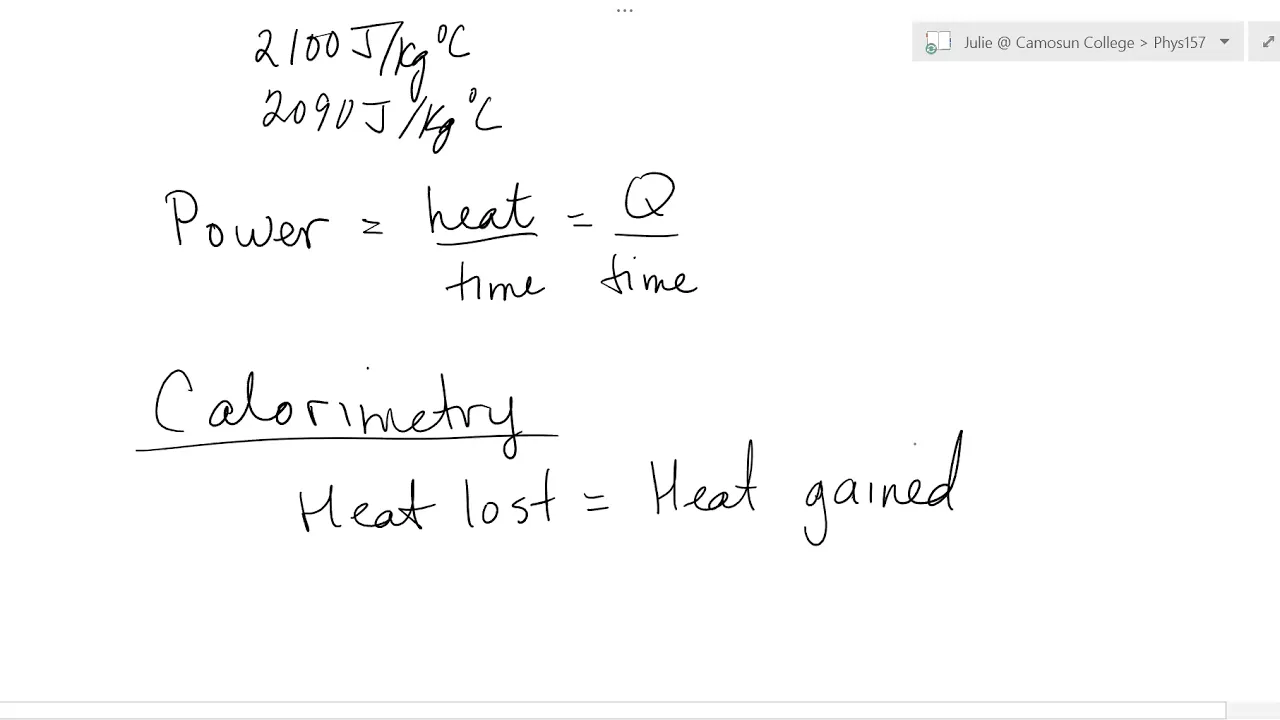 ...
Julie @ Camosun College > Phys157
2100 J/kg°C
2090 J/kg°C
Power = heat/time = Q/time
Calorimetry
Heat lost = Heat gained